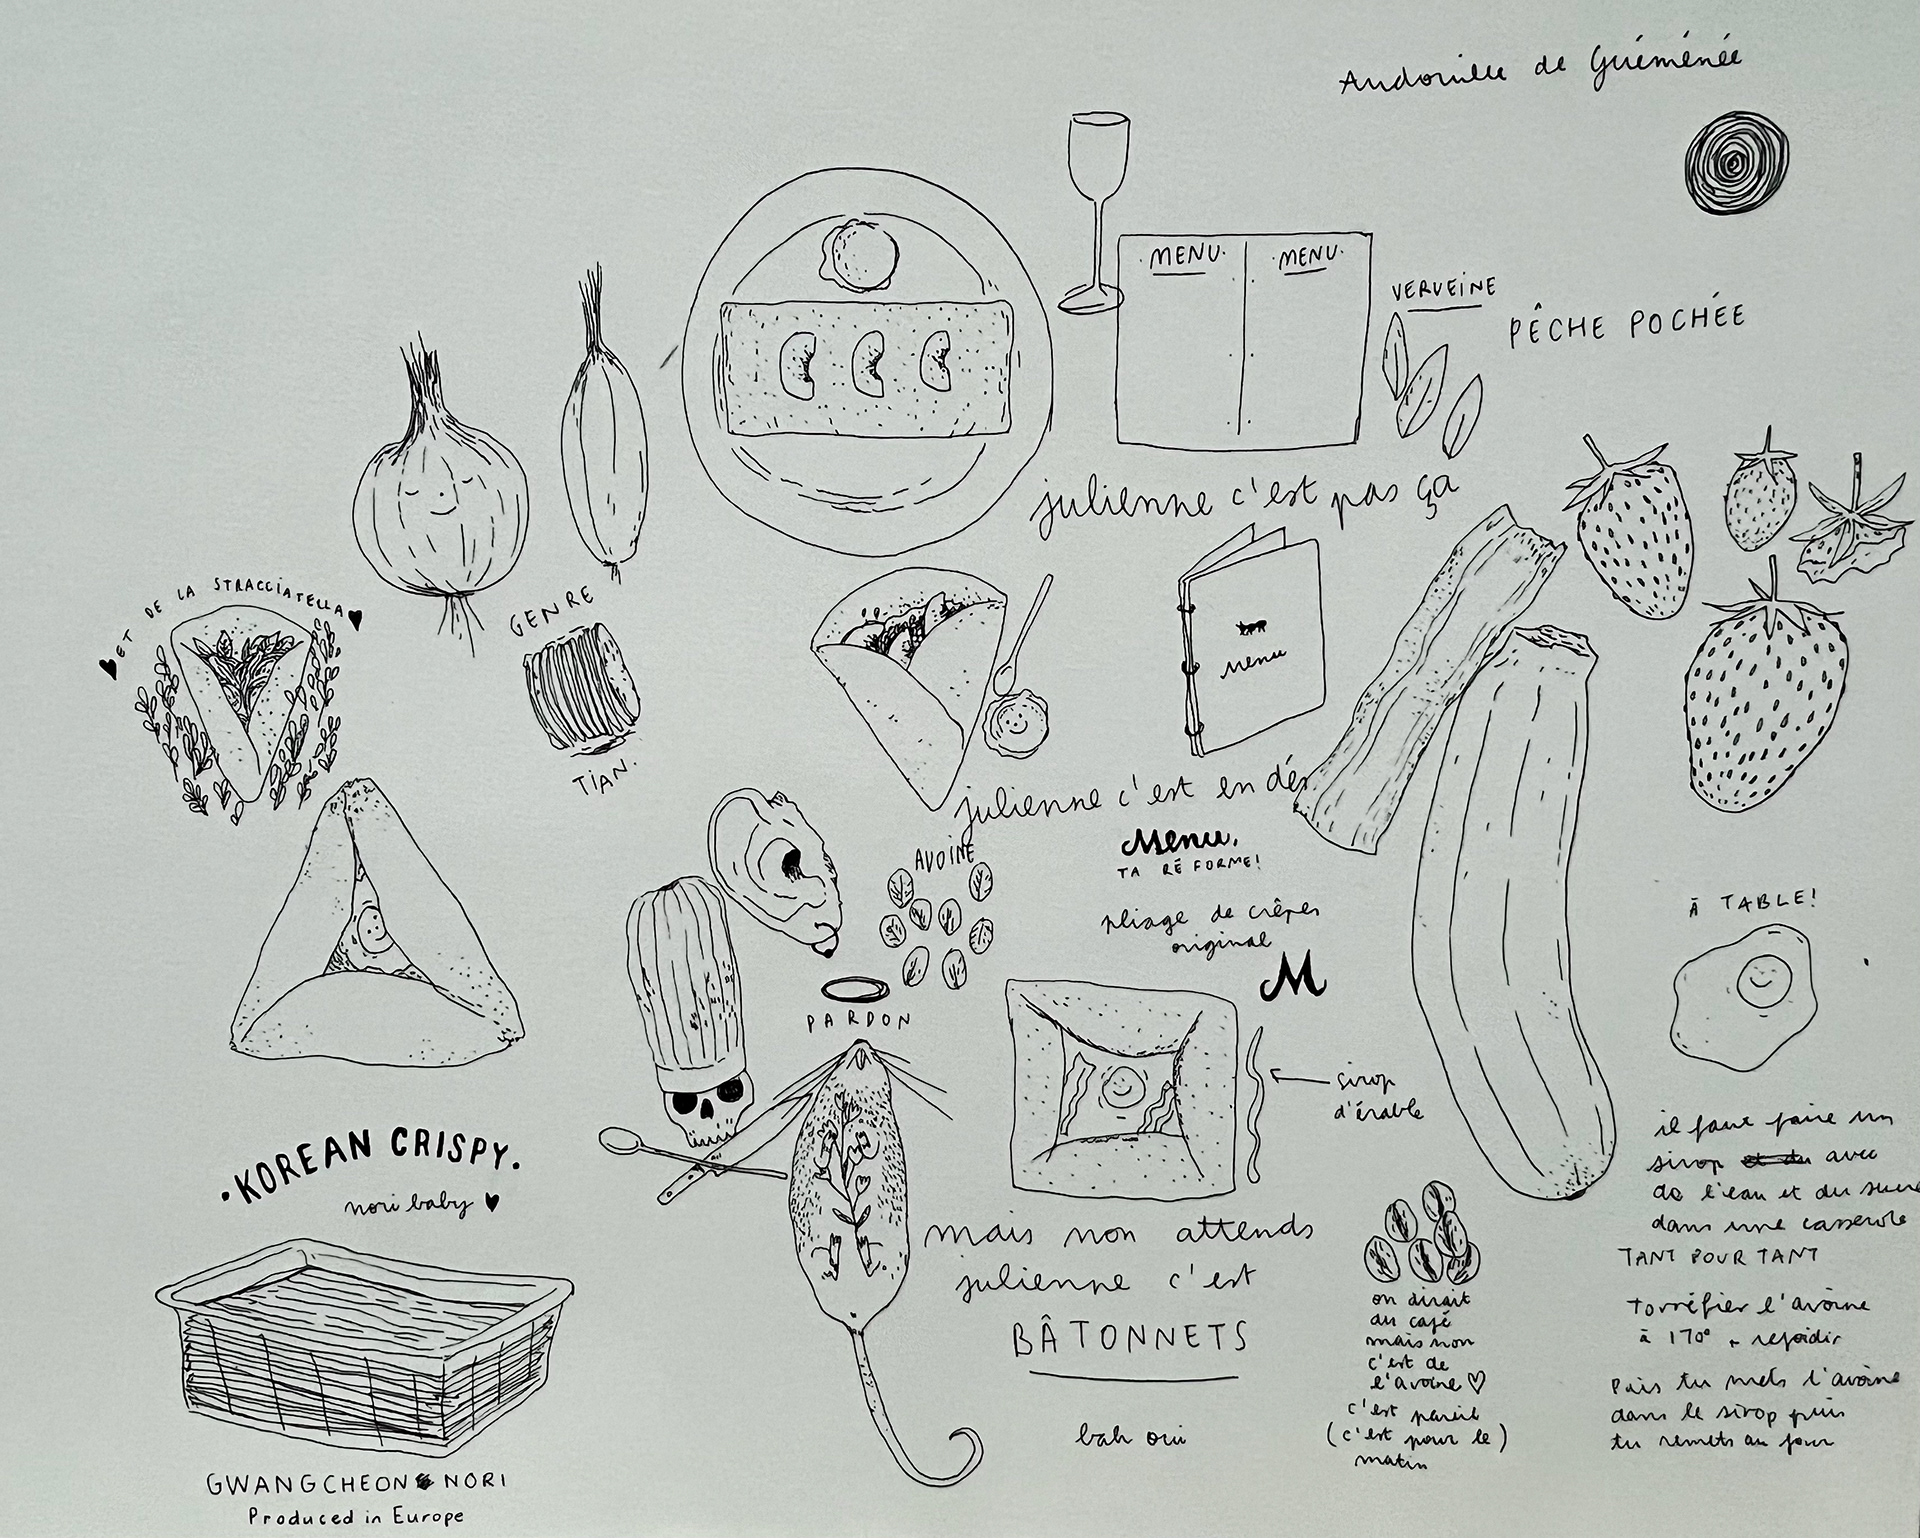 Andouille de Guéménée
MENU.
MENU.
VERVEINE
PÊCHE POCHÉE
julienne c'est pas ça
♥ ET DE LA STRACCIATELLA ♥
GENRE
TIAN.
Menu
julienne c'est en dés
Menu.
TA RÉ FORME!
AVOINE
pliage de crêpes
original
M
À TABLE!
PARDON
sirop
d'érable
·KOREAN CRISPY.
nori baby ♥
il faut faire un
sirop avec
de l'eau et du sucre
dans une casserole
TANT POUR TANT
mais non attends
julienne c'est
BÂTONNETS
bah oui
on dirait
du café
mais non
c'est de
l'avoine ♡
c'est pareil
(c'est pour le)
matin
torréfier l'avoine
à 170° + refoidir
Puis tu mets l'avoine
dans le sirop puis
tu remets au four
GWANGCHEON NORI
Produced in Europe